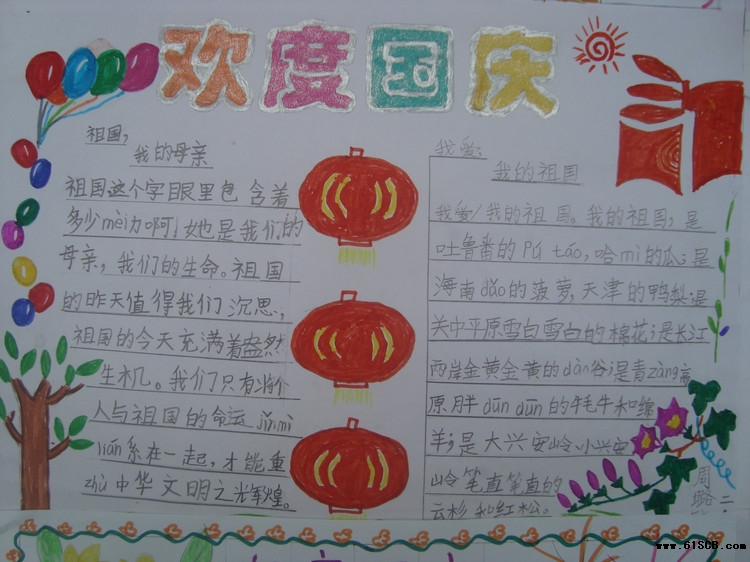 欢度国庆
祖国,
我的母亲
祖国这个字眼里包含着
多少mèi力啊!她是我们的
母亲,我们的生命。祖国
的昨天值得我们沉思,
祖国的今天充满着盎然
生机。我们只有将个
人与祖国的命运jǐnmì
lián系在一起,才能重
zhù中华文明之光辉煌。
我爱:
我的祖国
我爱/我的祖国。我的祖国,是
吐鲁番的Pú táo,哈mì的瓜;是
海南dǎo的菠萝,天津的鸭梨;是
关中平原雪白雪白的棉花;是长江
两岸金黄金黄的dào谷;是青zàng高
原胖dūn dūn的牦牛和绵
羊;是大兴安岭、小兴安
岭笔直笔直的
云杉和红松。
周璐
二
www.61SCB.com